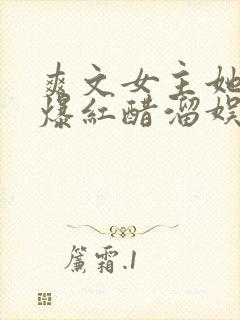 爽文女主她
爆紅醋溜娛
簾霜.1